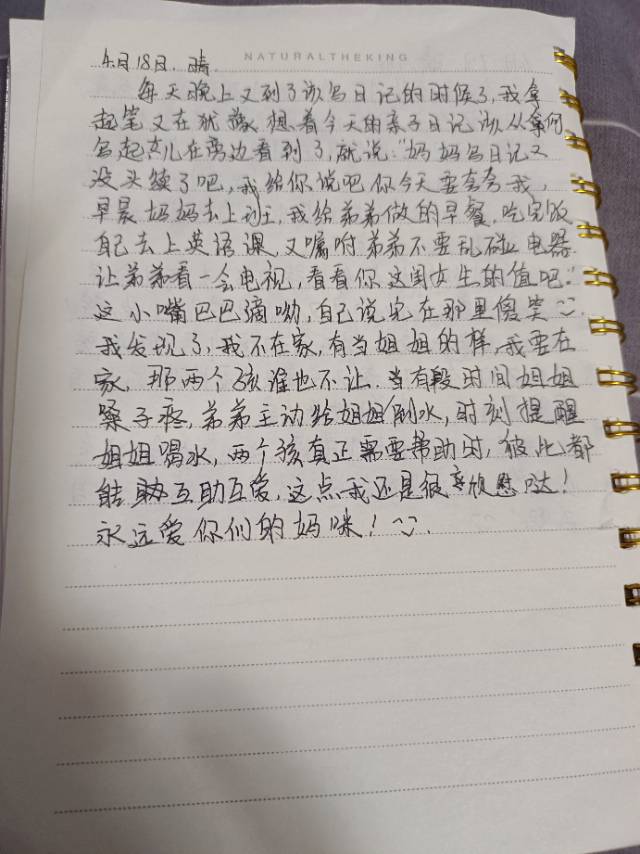 NATURALTHEKING
4月18日. 晴.
每天晚上又到了该写日记的时候了,我拿
起笔又在犹豫,想着今天的亲子日记该从何
写起,杰儿在旁边看到了,就说:"妈妈写日记又
没头绪了吧,我给你说吧你今天要夸夸我,
早晨妈妈去上班,我给弟弟做的早餐,吃完饭
自己去上英语课,又嘱咐弟弟不要乱碰电器
让弟弟看一会电视,看看你这闺女生的值吧."
这小嘴巴巴滴呦,自己说完在那里傻笑
我发现了,我不在家,有当姐姐的样,我要在
家,那两个孩谁也不让.当有段时间姐姐
嗓子疼,弟弟主动给姐姐倒水,时刻提醒
姐姐喝水,两个孩真正需要帮助时,彼此都
能互助互爱,这点我还是很欣慰哒!
永远爱你们的妈咪!